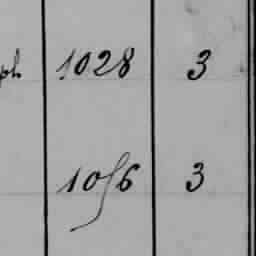 ph 1028 3
1056 3